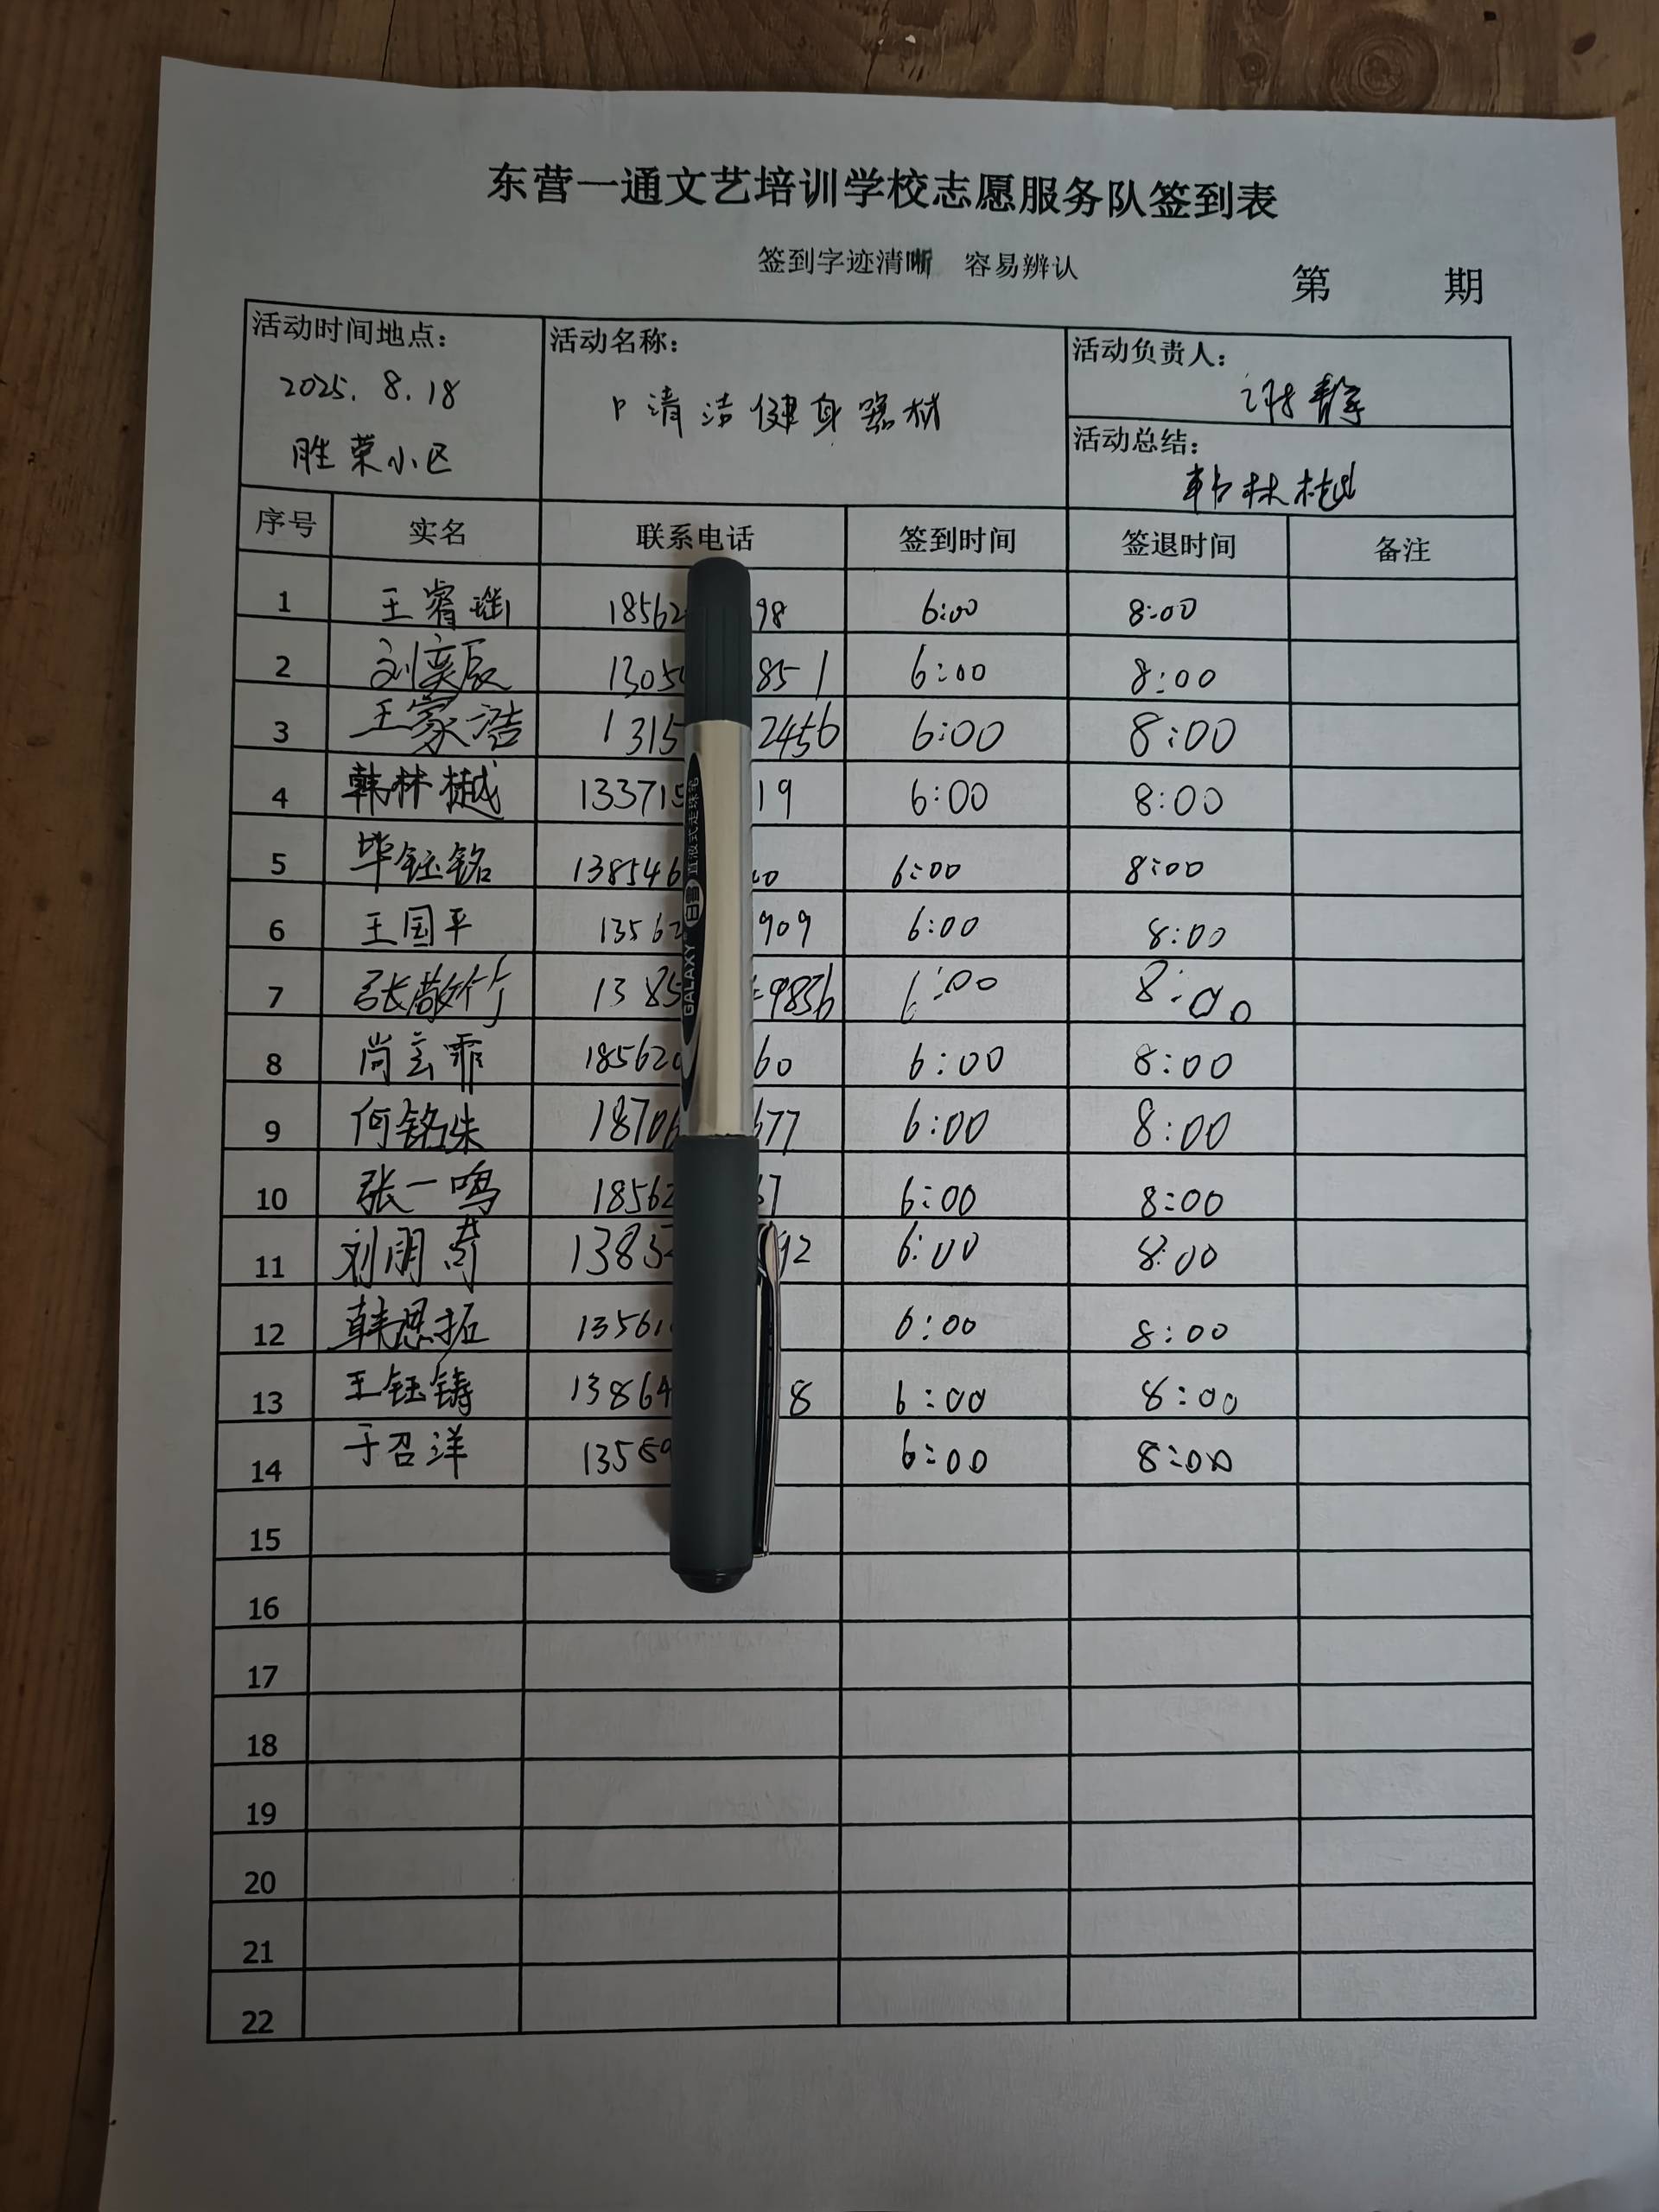 东营一通文艺培训学校志愿服务队签到表
签到字迹清晰 容易辨认
第 期
活动时间地点： 活动名称： 活动负责人：
2025.8.18 清洁健身器械 谢静
胜荣小区 活动总结：
韩林樾
序号 实名 联系电话 签到时间 签退时间 备注
1 王睿瑶 18562 98 6:00 8:00
2 刘奕辰 1305 851 6:00 8:00
3 王家浩 1315 2456 6:00 8:00
4 韩林樾 133715 19 6:00 8:00
5 毕钰铭 138546 0 6:00 8:00
6 王国平 13562 909 6:00 8:00
7 张敬竹 1385 9836 6:00 8:00
8 尚玄霏 185620 60 6:00 8:00
9 何铭姝 18706 677 6:00 8:00
10 张一鸣 18562 67 6:00 8:00
11 刘朋奇 1385 92 6:00 8:00
12 韩思拓 13561 6:00 8:00
13 王钰铸 13864 8 6:00 8:00
14 于召洋 13589 6:00 8:00
15
16
17
18
19
20
21
22
GALAXY 白雪 直液式走珠笔